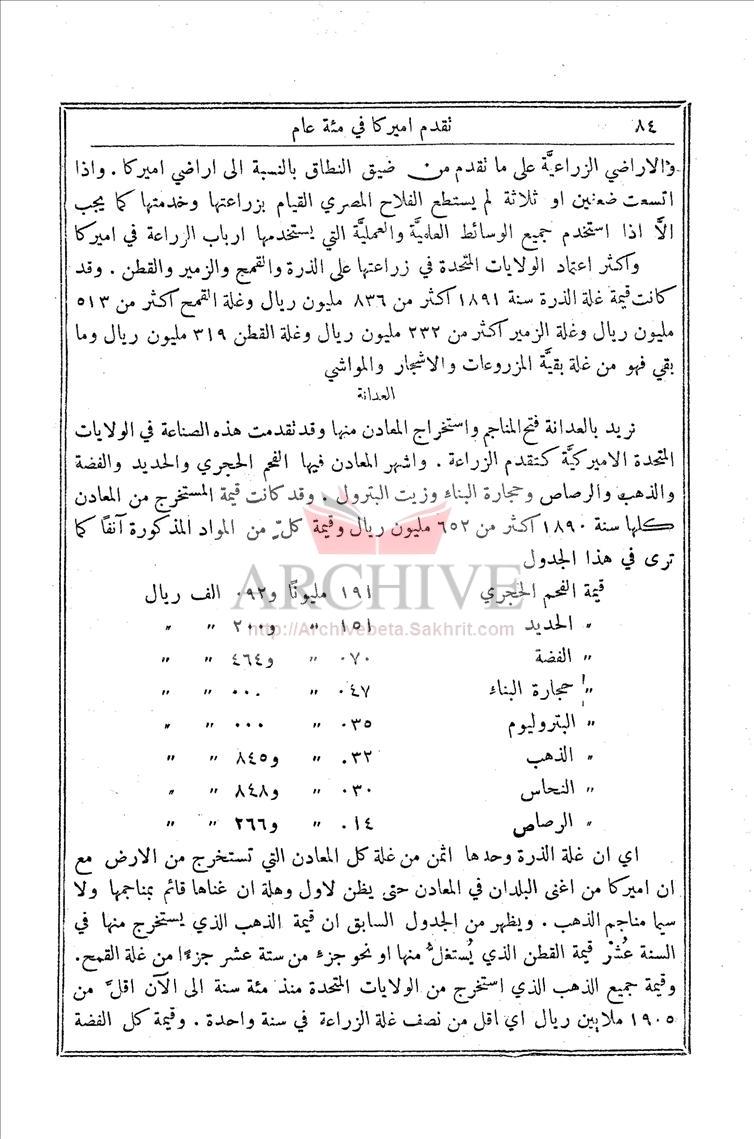 ٨٤ تقدم اميركا في مئة عام
والاراضي الزراعيَّة على ما تقدم من ضيق النطاق بالنسبة الى اراضي اميركا . واذا
اتسعت ضعفين او ثلاثة لم يستطع الفلاح المصري القيام بزراعتها وخدمتها كما يجب
الَّا اذا استخدم جميع الوسائط العلميَّة والعمليَّة التي يستخدمها ارباب الزراعة في اميركا
واكثر اعتماد الولايات المتحدة في زراعتها على الذرة والقمح والزمير والقطن . وقد
كانت قيمة غلة الذرة سنة ١٨٩١ اكثر من ٨٣٦ مليون ريال وغلة القمح اكثر من ٥١٣
مليون ريال وغلة الزمير اكثر من ٢٣٢ مليون ريال وغلة القطن ٣١٩ مليون ريال وما
بقي فهو من غلة بقيَّة المزروعات والاشجار والمواشي
العدانة
نريد بالعدانة فتح المناجم واستخراج المعادن منها وقد تقدمت هذه الصناعة في الولايات
المتحدة الاميركيَّة كتقدم الزراعة . واشهر المعادن فيها الفحم الحجري والحديد والفضة
والذهب والرصاص وحجارة البناء وزيت البترول . وقد كانت قيمة المستخرج من المعادن
كلها سنة ١٨٩٠ اكثر من ٦٥٢ مليون ريال وقيمة كلٍّ من المواد المذكورة آنفًا كما
ترى في هذا الجدول
قيمة الفحم الحجري ١٩١ مليونًا و٠٩٢ الف ريال
" الحديد ١٥١ " و٢٠٠ " "
" الفضة ٠٧٠ " و٤٦٤ " "
" حجارة البناء ٠٤٧ " ٠٠٠ " "
" البتروليوم ٠٣٥ " ٠٠٠ " "
" الذهب ٠٣٢ " و٨٤٥ " "
" النحاس ٠٣٠ " و٨٤٨ " "
" الرصاص ٠١٤ " و٢٦٦ " "
اي ان غلة الذرة وحدها اثمن من غلة كل المعادن التي تستخرج من الارض مع
ان اميركا من اغنى البلدان في المعادن حتى يظن لاول وهلة ان غناها قائم بمناجمها ولا
سيما مناجم الذهب . ويظهر من الجدول السابق ان قيمة الذهب الذي يستخرج منها في
السنة عُشْر قيمة القطن الذي يُستغلُّ منها او نحو جزءٍ من ستة عشر جزءًا من غلة القمح.
وقيمة جميع الذهب الذي استخرج من الولايات المتحدة منذ مئة سنة الى الآن اقلّ من
١٩٠٥ ملايين ريال اي اقل من نصف غلة الزراعة في سنة واحدة . وقيمة كل الفضة
ARCHIVE
http://Archivebeta.Sakhrit.com